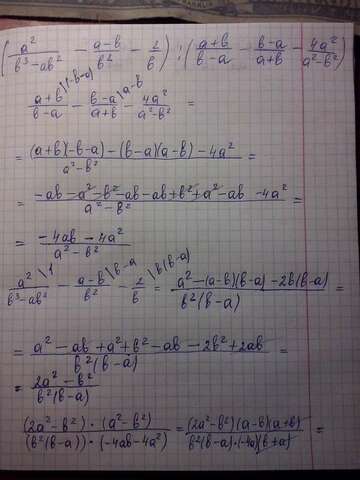 (a²/(b³-ab²) - (a-b)/b² - 2/b) : ((a+b)/(b-a) - (b-a)/(a+b) - 4a²/(a²-b²))
(a+b)/(b-a) \(-b-a) - (b-a)/(a+b) \a-b - 4a²/(a²-b²) =
= ((a+b)(-b-a) - (b-a)(a-b) - 4a²)/(a²-b²) =
= (-ab-a²-b²-ab-ab+b²+a²-ab-4a²)/(a²-b²) =
= (-4ab-4a²)/(a²-b²)
a²/(b³-ab²) \1 - (a-b)/b² \b-a - 2/b \b(b-a) = (a²-(a-b)(b-a)-2b(b-a))/(b²(b-a)) =
= (a²-ab+a²+b²-ab-2b²+2ab)/(b²(b-a)) =
= (2a²-b²)/(b²(b-a))
((2a²-b²)·(a²-b²))/((b²(b-a))·(-4ab-4a²)) = ((2a²-b²)(a-b)(a+b))/(b²(b-a)·(-4a)(b+a)) =